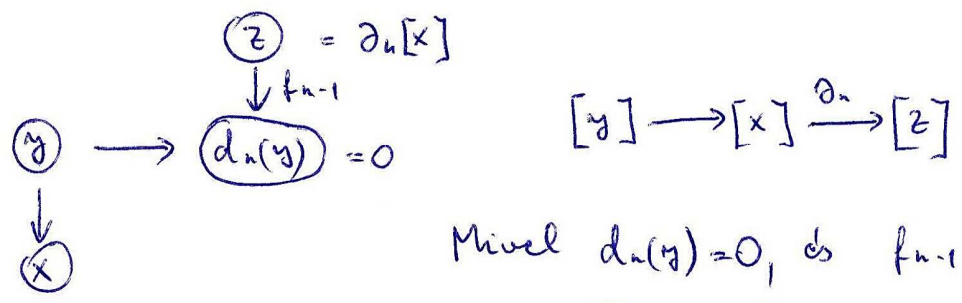 z = ∂n[x]
↓ fn-1
y → dn(y) = 0
↓
x
[y] → [x] ∂n→ [z]
Mivel dn(y)=0, és fn-1